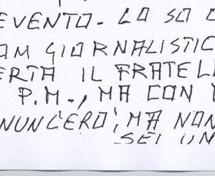 EVENTO. LO SO C
OM GIORNALISTIC
ERTA IL FRATELL
P.M., MA CON
NUNCERO', MA NON
SEI UN